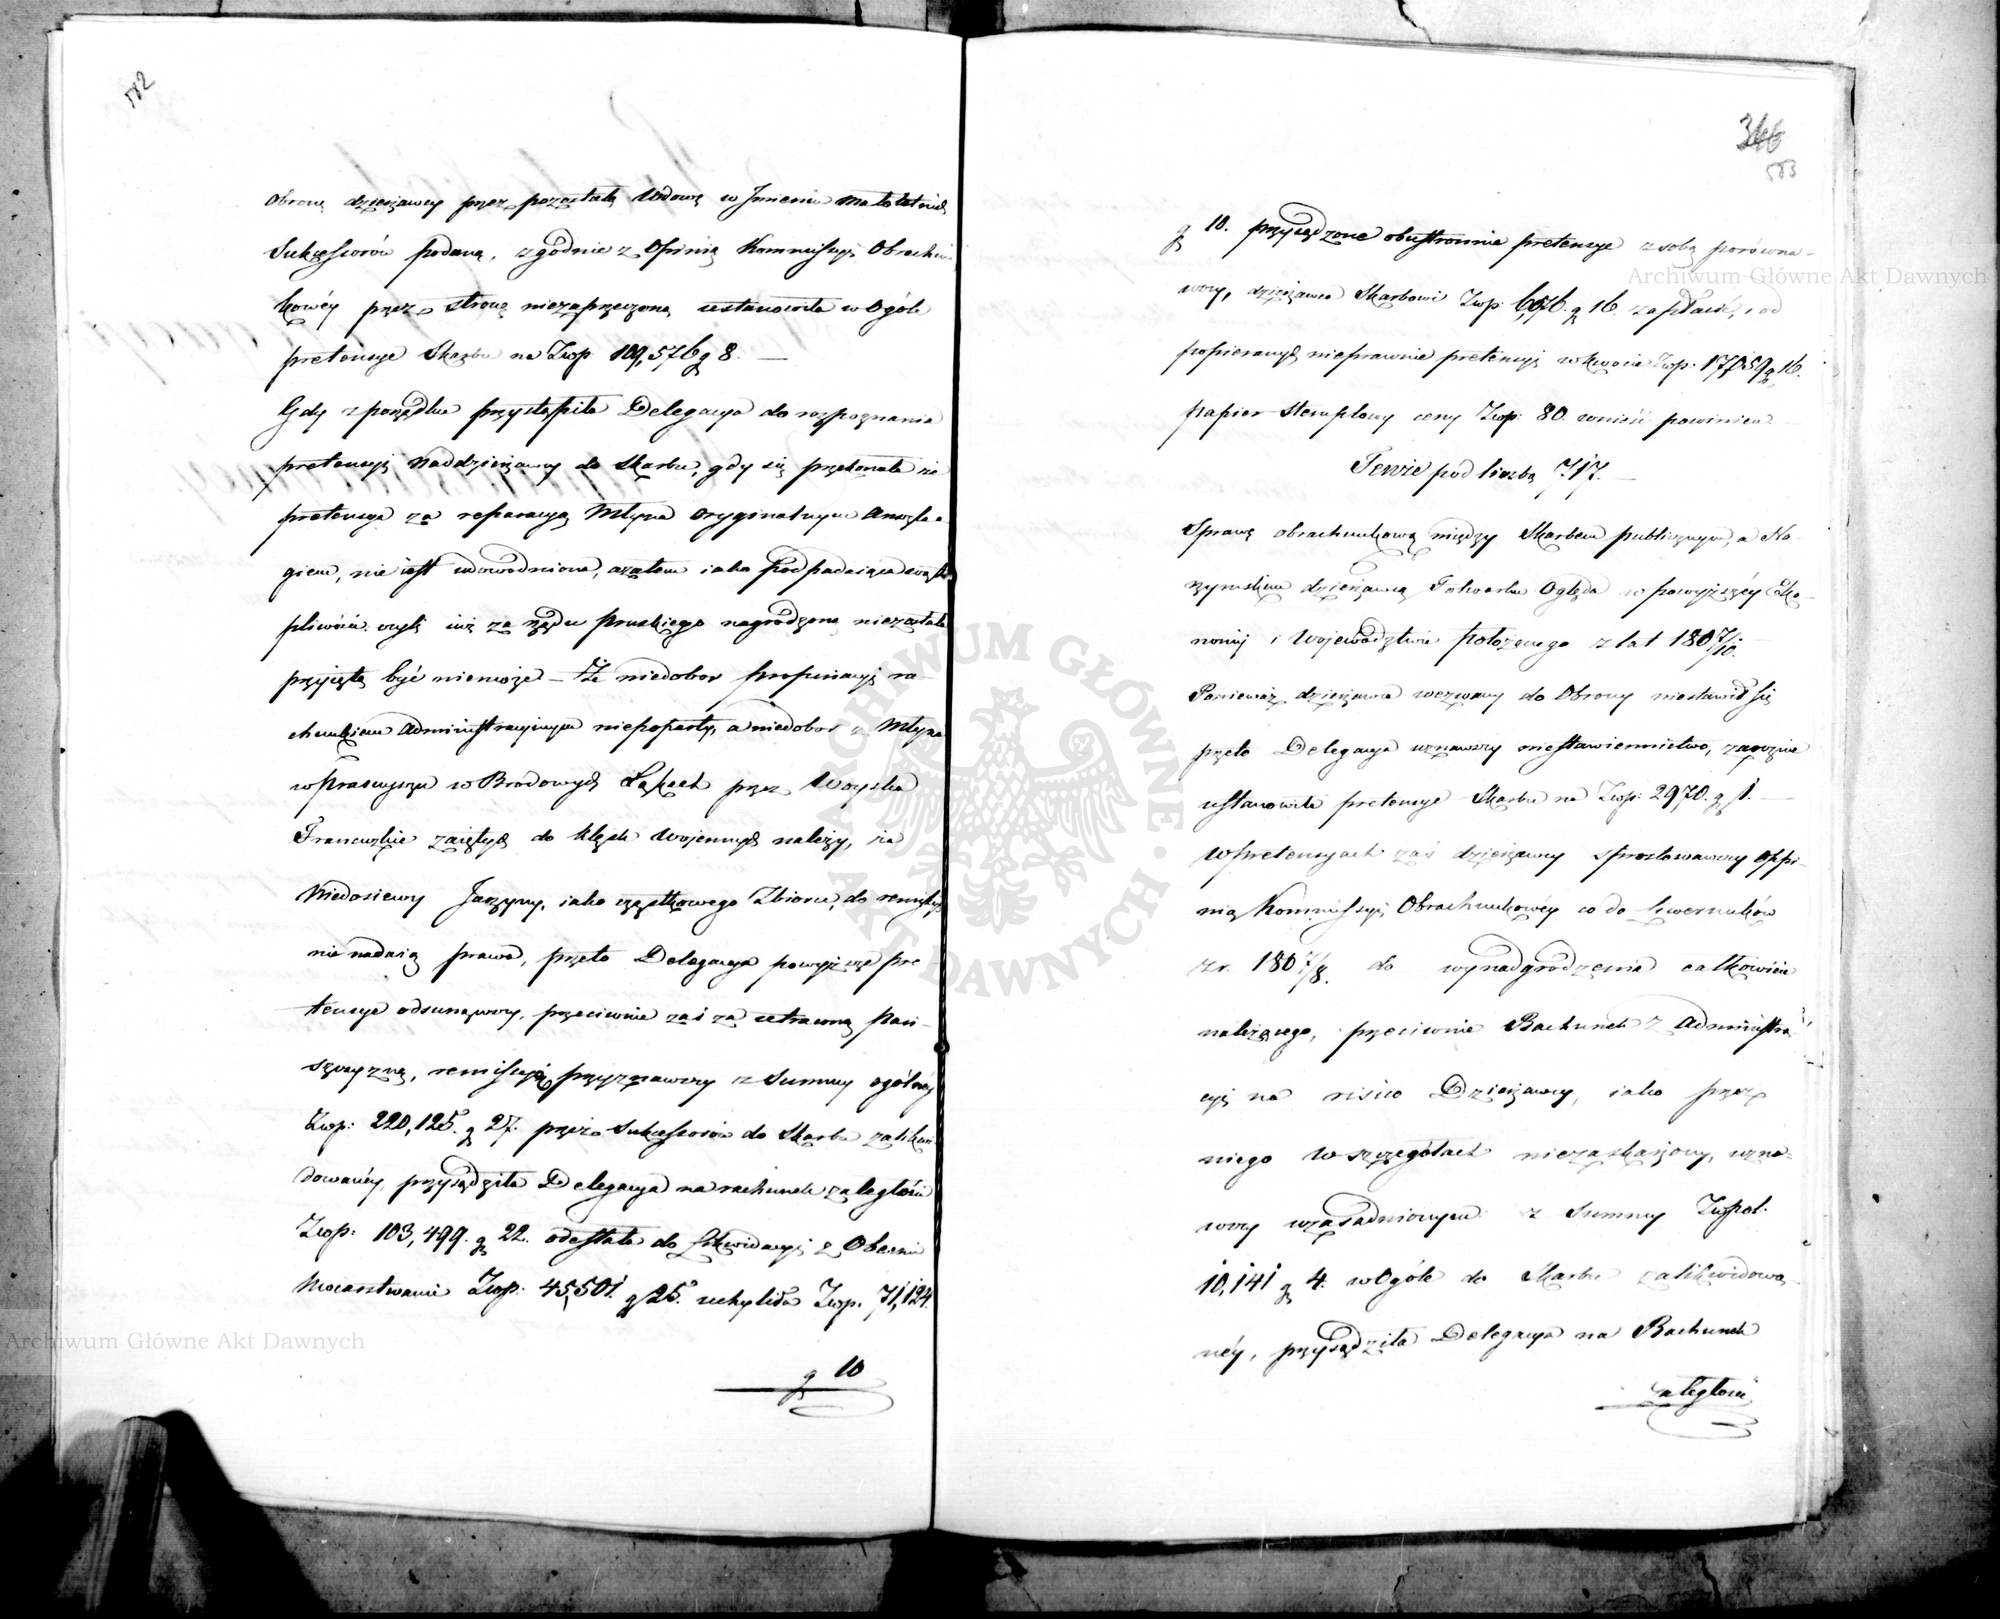 582
obronę dzierżawcy przez pozostałą Wdowę w Imieniu małoletnich
Sukcessorów podaną, zgodnie z Opinią Kommissyi Obrachun
kowéy przez stronę niezaprzeczoną ustanowiła w Ogóle
pretensye Skarbu na Złłp 109,576 g 8. —
Gdy z porządku przystąpiła Delegacya do rozpoznania
pretensyi Naddzierżawcy do Skarbu, gdy się przekonała że
pretensya za reparacyą Młyna oryginalnym Anszla-
giem, nie iest udowodniona, a zatem iako podpadaiąca wąt
pliwości czyli iuż za rządu pruskiego nagrodzoną niezostała
przyiętą być niemoże — Że niedobor propinacyi ra-
chunkiem Administracyinym niepoparty, a niedobor z Młyna
w Prasnyszu w Brodowych Łąkach przez Woyska
Francuzkie zaiętych do klęsk Woiennych należy, że
Niedosiewy Jarzyny, iako cząstkowego Zbioru, do remissyi
nie nadaią prawa, przeto Delegacya powyższe pre-
tensye odsunąwszy, przeciwnie zaś za utraconą pań-
szczyznę, remissyą przyznawszy z Summy ogólnéy
Złłp: 220,125. g 27. przez Sukcessorów do Skarbu zalikwi-
dowanéy, przysądziła Delegacya na rachunek zaległości
Złłp: 103,499. g 22. odesłała do Likwidacyi z Obcemi
Mocarstwami Złłp: 45,501. g 25. uchyliła Złłp. 71,124.
g 10
346
583
g 10. przysądzone obustronnie pretensye z sobą porówna-
wszy, dzierżawca Skarbowi Złłp: 6,076. g 16. zapłacić, i od
popieranych nieprawnie pretensyi w kwocie Złłp: 17,059 g 16.
papier stemplowy ceny Złłp: 80. wnieść powinien —
Tewże pod liczbą 717. —
Sprawę obrachunkową między Skarbem publicznym, a
dzierżawcą Folwarku Oględa w powyższéy Eko-
nomii i Województwie położonego z lat 1807/10.
Ponieważ dzierżawca wezwany do Obrony niestawił się
przeto Delegacya uznawszy niestawiennictwo, zaocznie
ustanowiła pretensye Skarbu na Złłp: 2970. g 1. —
W pretensyach zaś dzierżawcy sprostowawszy oppi-
nią Kommissyi Obrachunkowéy co do Liwerunków
z r. 1807/8. do wynadgrodzenia całkowicie
należącego, przeciwnie Rachunek z Administra
cyi na risico Dzierżawcy, iako przez
niego w szczegółach niezaskarżony, uzna-
wszy uzasadnionym z Summy Złłpol.
10,141 g 4. w Ogóle do Skarbu zalikwidowa-
néy, przysądziła Delegacya na Rachunek
zaległości
Archiwum Główne Akt Dawnych
Archiwum Główne Akt Dawnych
ARCHIWUM GŁÓWNE • AKT DAWNYCH •